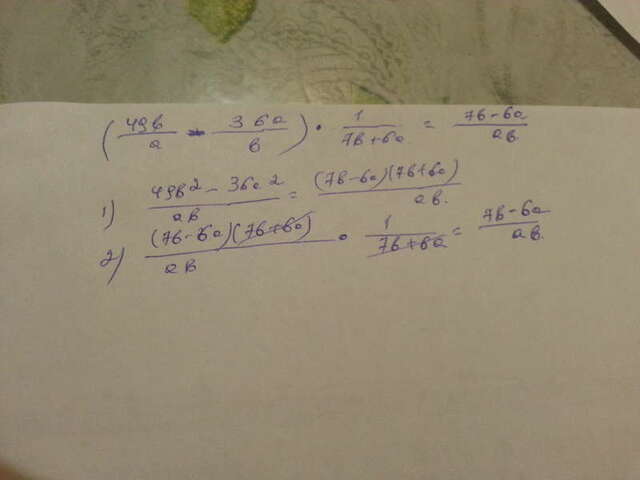 (49b/a - 36a/b) · 1/(7b+6a) = (7b-6a)/ab
1) (49b² - 36a²)/ab = (7b-6a)(7b+6a)/ab.
2) (7b-6a)(7b+6a)/ab · 1/(7b+6a) = (7b-6a)/ab.